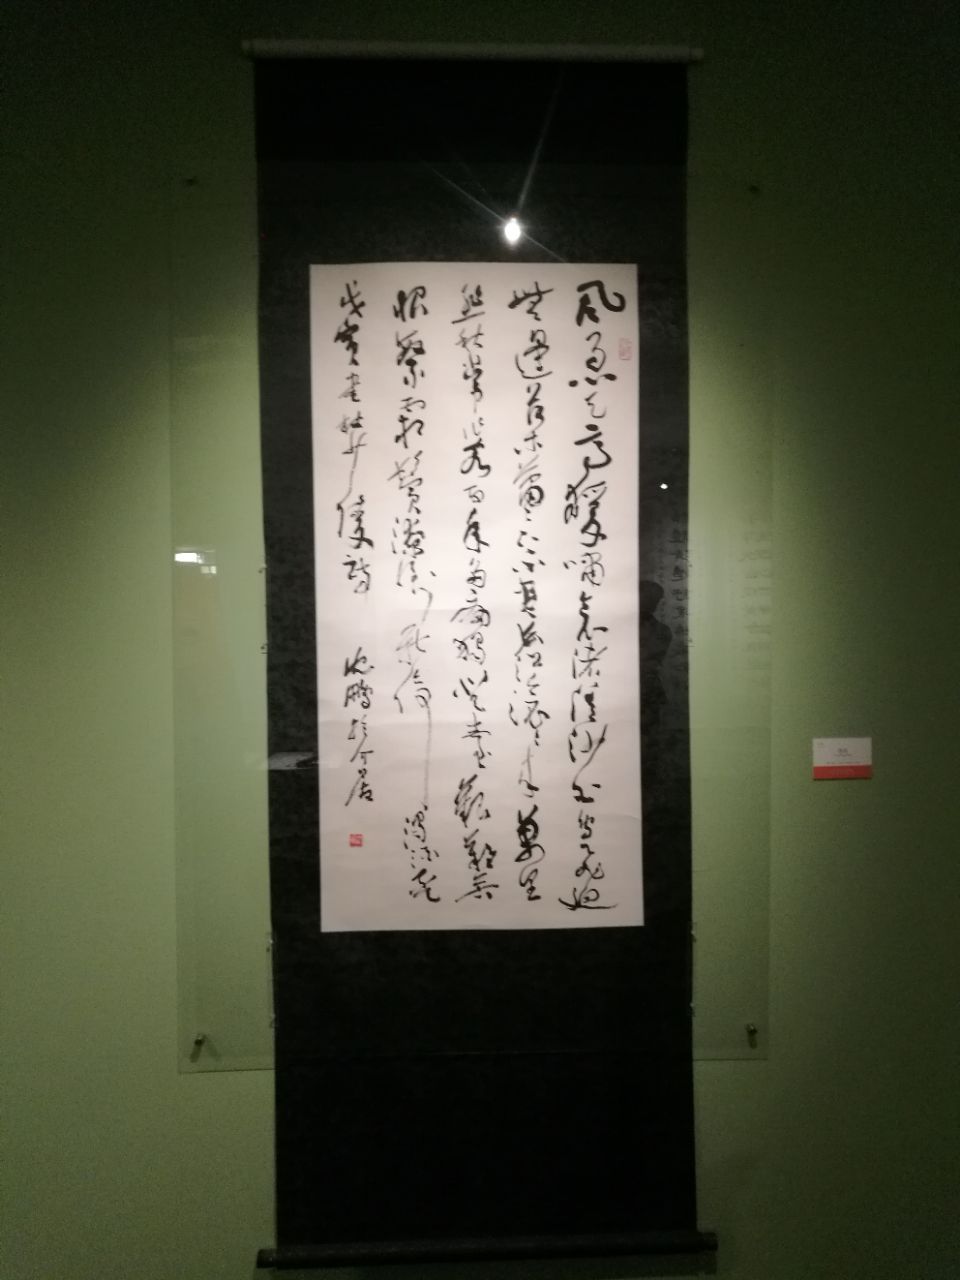 風急天高猿嘯哀渚清沙白鳥飛迴
無邊落木蕭〻下不盡長江滚〻来萬里
悲秋常作客百年多病獨登臺艱難苦
恨繁霜鬢潦倒新停濁酒杯
戊寅書杜少陵詩 沈鵬於介居